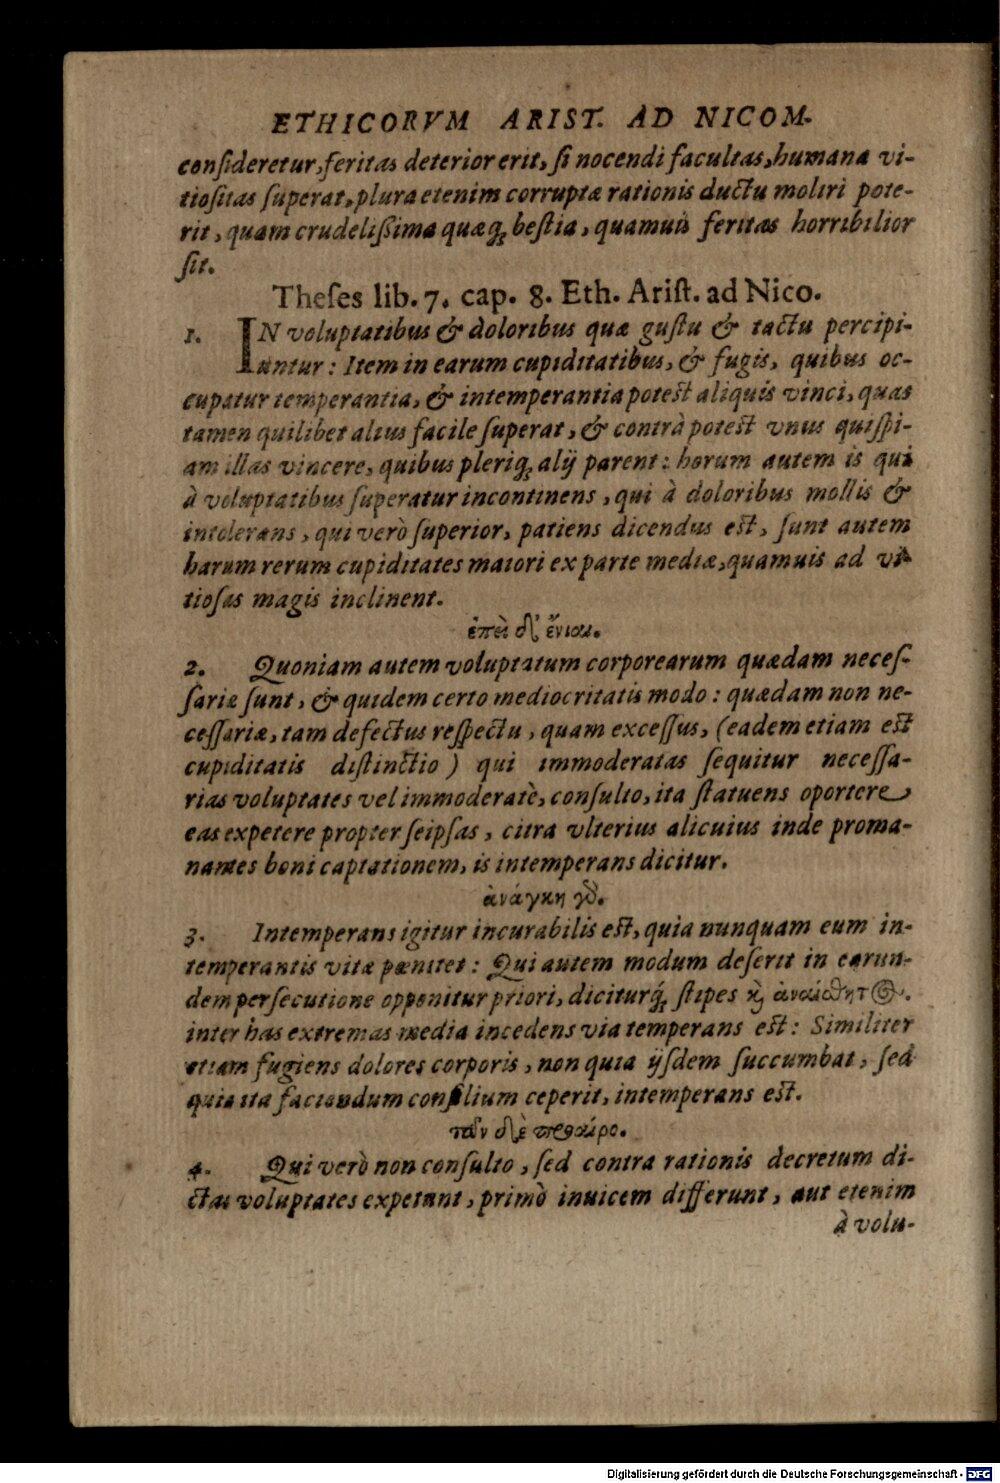 ETHICORVM ARIST. AD NICOM.
conſideretur, feritas deterior erit, ſi nocendi facultas, humana vi-
tioſitas ſuperat, plura etenim corruptæ rationis ductu moliri pote-
rit, quam crudelißima quæq; beſtia, quamuis feritas horribilior
ſit.
Theſes lib. 7. cap. 8. Eth. Ariſt. ad Nico.
1. IN voluptatibus & doloribus quæ guſtu & tactu percipi-
untur: Item in earum cupiditatibus, & fugis, quibus oc-
cupatur temperantia, & intemperantia potest aliquis vinci, quas
tamen quilibet alius facile ſuperat, & contrà potest vnus quiſpi-
am illas vincere, quibus pleriq; alij parent: horum autem is qui
à voluptatibus ſuperatur incontinens, qui à doloribus mollis &
intolerans, qui verò ſuperior, patiens dicendus est, ſunt autem
harum rerum cupiditates maiori ex parte mediæ, quamuis ad vi-
tioſas magis inclinent.
ἐπεὶ δ' ἔνιαι.
2. Quoniam autem voluptatum corporearum quædam neceſ-
ſariæ ſunt, & quidem certo mediocritatis modo: quædam non ne-
ceſſariæ, tam defectus reſpectu, quam exceſſus, (eadem etiam est
cupiditatis diſtinctio) qui immoderatas ſequitur neceſſa-
rias voluptates vel immoderatè, conſulto, ita ſtatuens oportere
eas expetere propter ſeipſas, citra vlterius alicuius inde proma-
nantes boni captationem, is intemperans dicitur.
ἀνάγκη γὸ.
3. Intemperans igitur incurabilis est, quia nunquam eum in-
temperantis vitæ pœnitet: Qui autem modum deſerit in earun-
dem perſecutione opponitur priori, diciturq́; ſtipes ϗ ἀναίσθητ@.
inter has extremas media incedens via temperans est: Similiter
etiam fugiens dolores corporis, non quia ijſdem ſuccumbat, ſed
quia ita faciendum conſilium ceperit, intemperans est.
τῶν δὲ προαίρο.
4. Qui verò non conſulto, ſed contra rationis decretum di-
ctas voluptates expetunt, primò inuicem differunt, aut etenim
à volu-
Digitalisierung gefördert durch die Deutsche Forschungsgemeinschaft - DFG